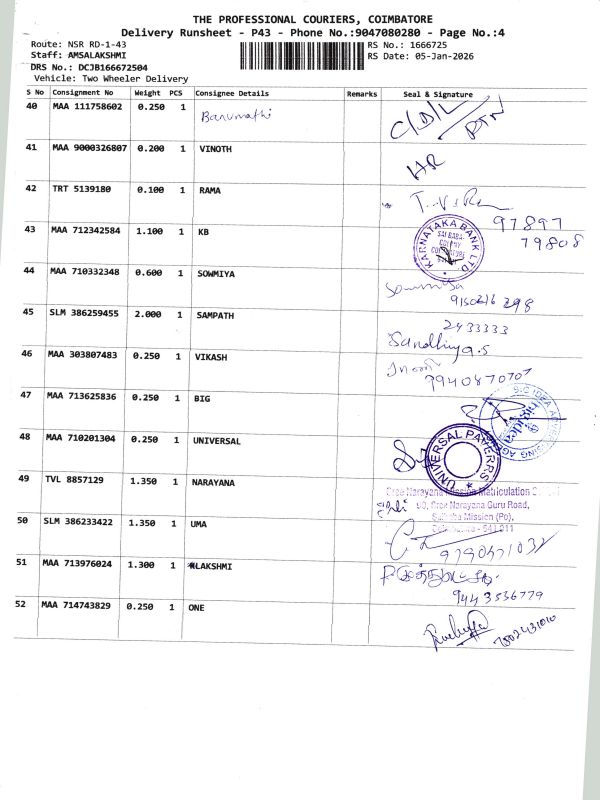 THE PROFESSIONAL COURIERS, COIMBATORE
Delivery Runsheet - P43 - Phone No.:9047080280 - Page No.:4
Route: NSR RD-1-43
RS No.: 1666725
Staff: AMSALAKSHMI
RS Date: 05-Jan-2026
DRS No.: DCJB166672504
Vehicle: Two Wheeler Delivery
S No Consignment No Weight PCS Consignee Details Remarks Seal & Signature
40 MAA 111758602 0.250 1 Banumathi
41 MAA 9000326807 0.200 1 VINOTH
42 TRT 5139180 0.100 1 RAMA
97897
79808
43 MAA 712342584 1.100 1 KB
KARNATAKA BANK LTD
SAI BABA
COLONY
44 MAA 710332348 0.600 1 SOWMIYA
Sowmiya
9150216 298
45 SLM 386259455 2.000 1 SAMPATH
2433333
Sandhiya.S
46 MAA 303807483 0.250 1 VIKASH
9940870707
47 MAA 713625836 0.250 1 BIG
48 MAA 710201304 0.250 1 UNIVERSAL
UNIVERSAL PAVERRS
49 TVL 8857129 1.350 1 NARAYANA
Sree Narayana Mission Matriculation
90, Sree Narayana Guru Road,
Mission (Po),
50 SLM 386233422 1.350 1 UMA
9790571032
51 MAA 713976024 1.300 1 LAKSHMI
9443536779
52 MAA 714743829 0.250 1 ONE